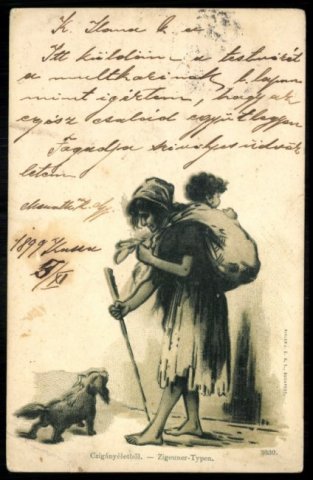 K. Ilona k. a.
Itt küldöm a testvérét
a multkorinak, b. lapon
mint igértem, hogy az
egész család együtt legyen
Fogadja szivélyes üdvöz
letem
1899 Kassa
5/XI
Czigányéletből. — Zigeuner-Typen.
3030.